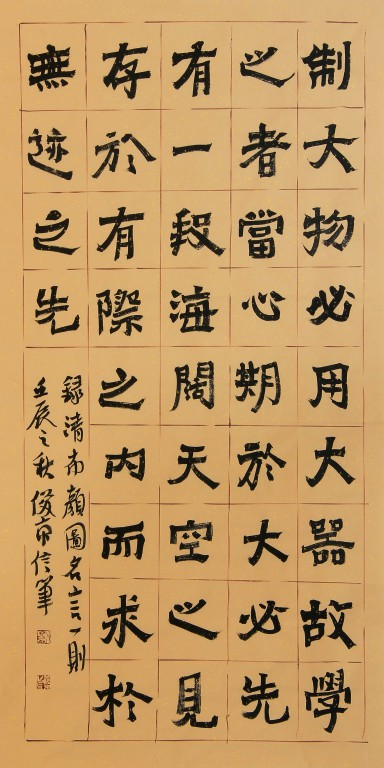 制大物必用大器故學
之者當心期於大必先
有一段海闊天空之見
存於有際之內而求於
無迹之先
錄清布顏圖名言一則
壬辰之秋俊京信筆